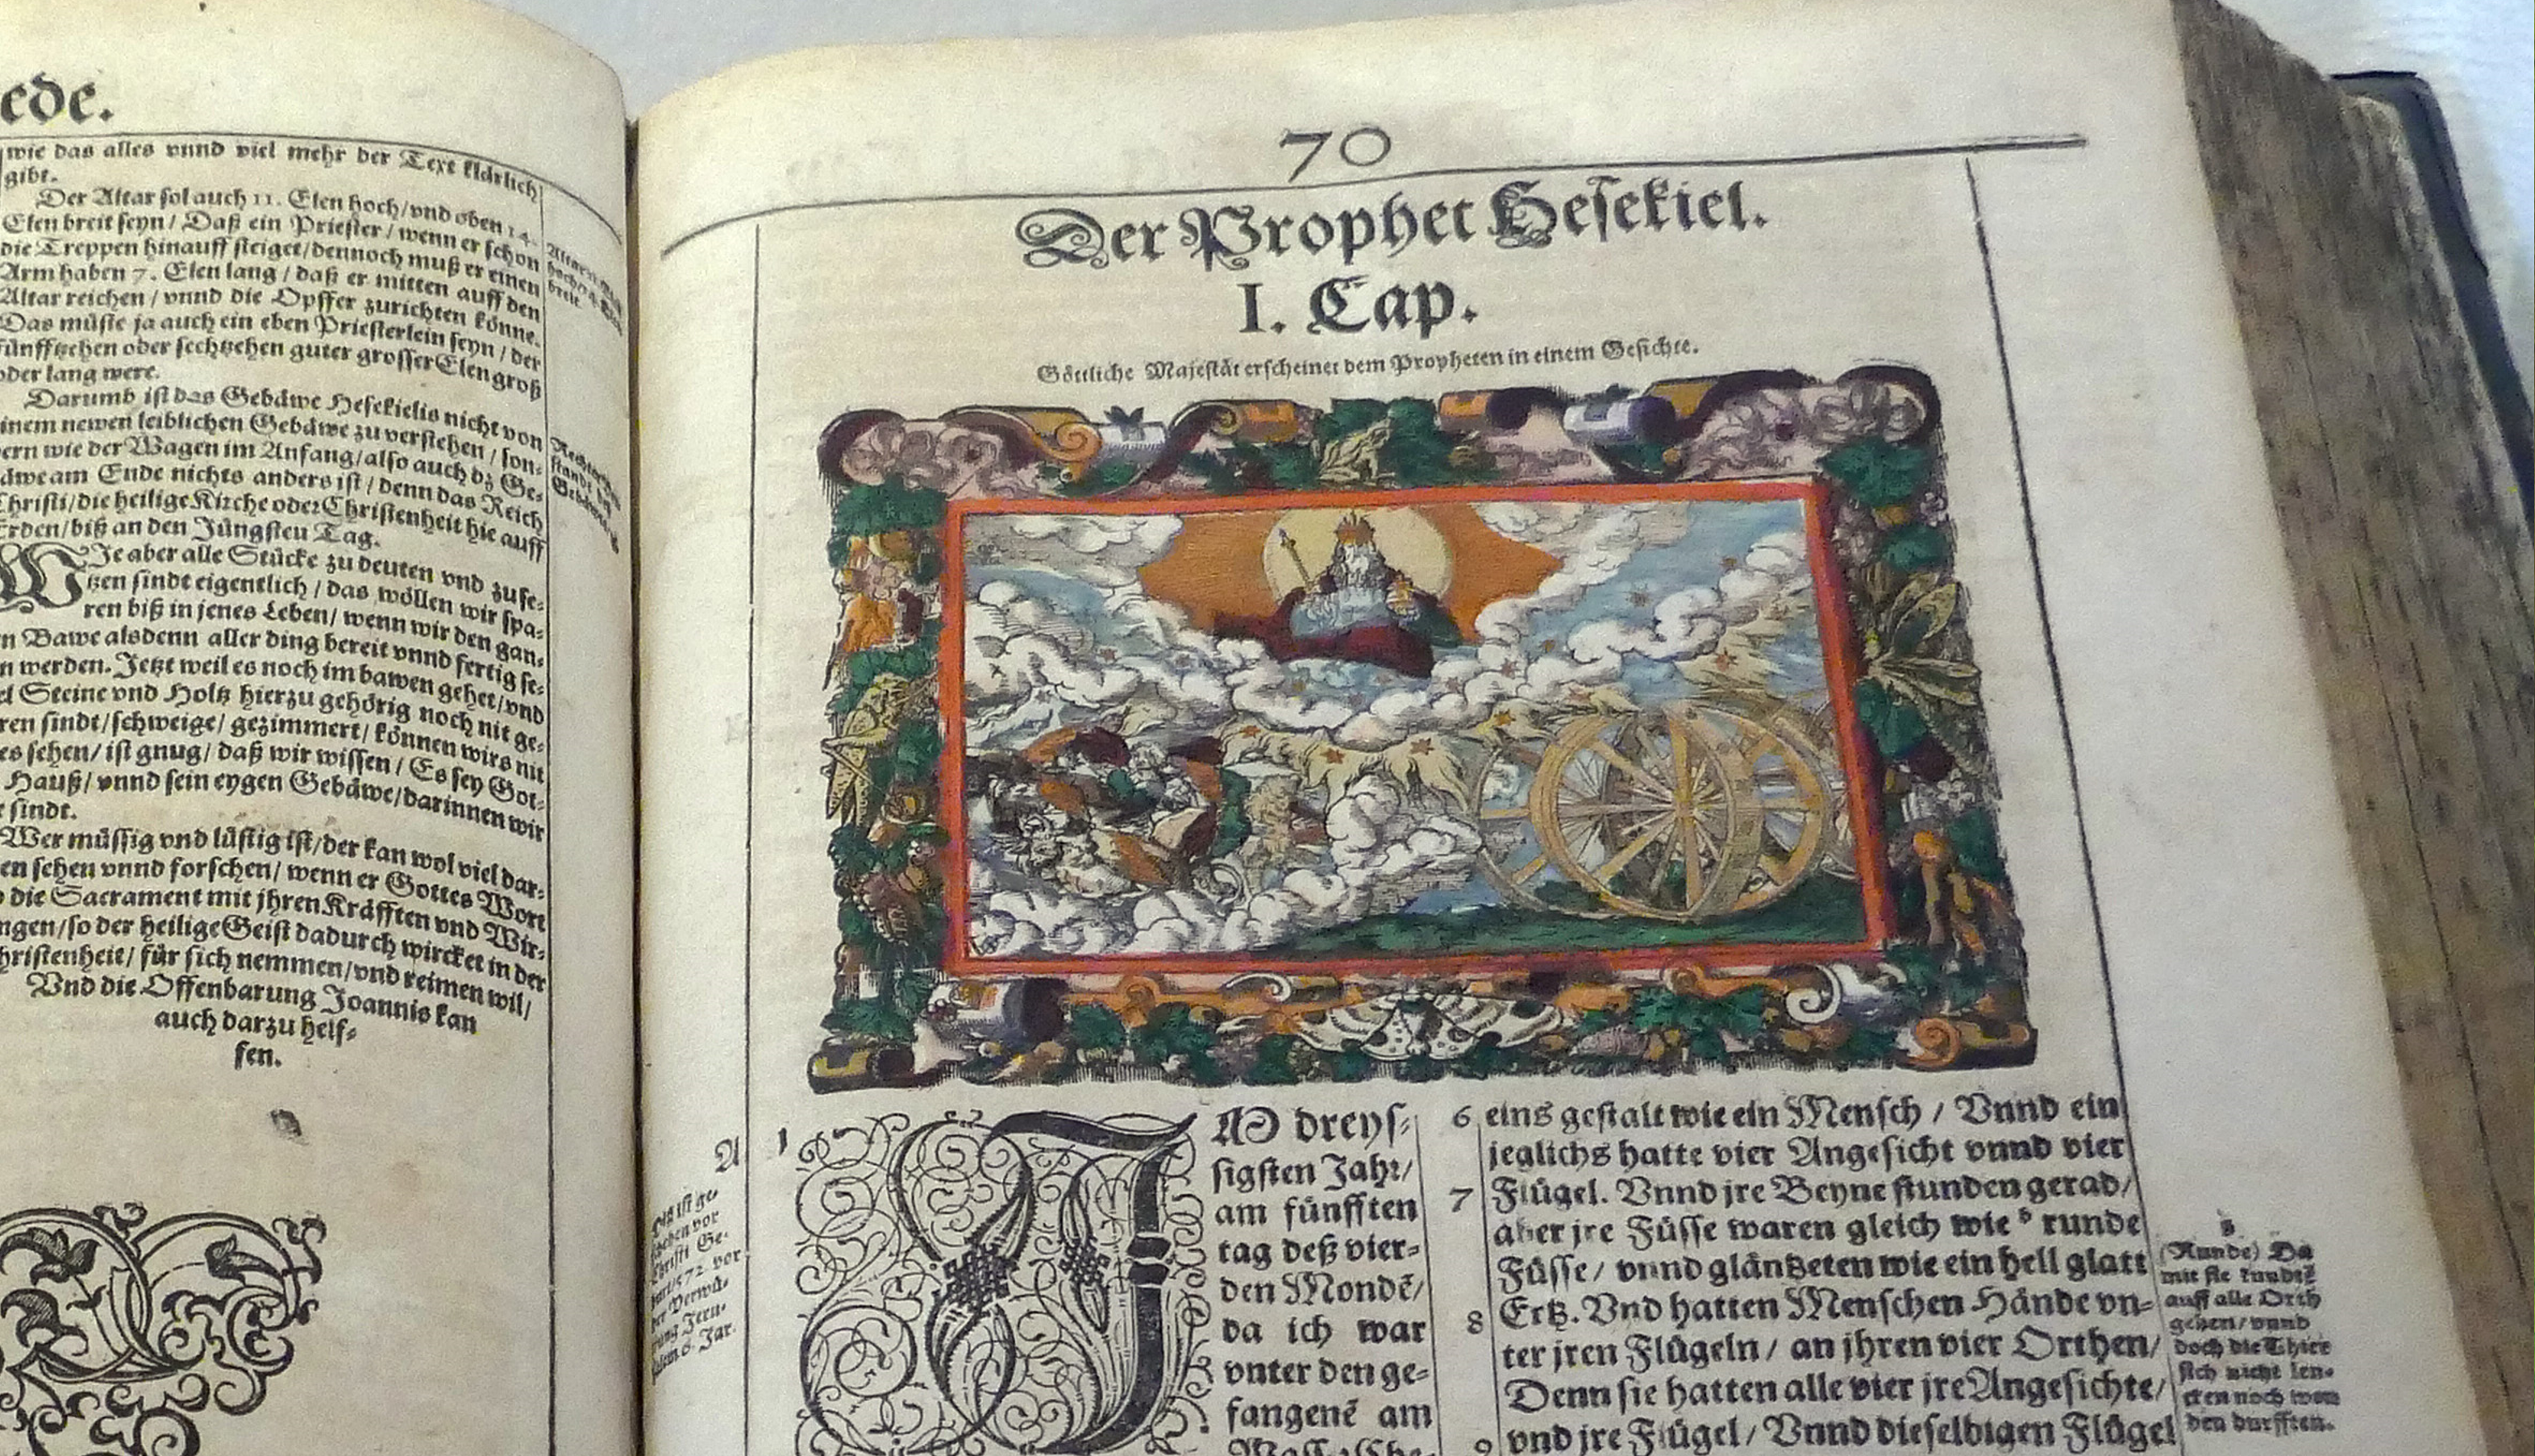 ede.
wie das alles vnnd viel mehr der Text klärlich
gibt.
Der Altar sol auch 11. Elen hoch/vnd oben 14.
Elen breit seyn/Daß ein Priester/wenn er schon
die Treppen hinauff steiget/dennoch muß er einen
Arm haben 7. Elen lang/daß er mitten auff den
Altar reichen/vnnd die Opffer zurichten könne.
Das müste ja auch ein eben Priesterlein seyn/der
fünffzehen oder sechtzehen guter grosser Elen groß
oder lang were.
Darumb ist das Gebäwe Hesekielis nicht von
einem newen leiblichen Gebäwe zu verstehen/son-
dern wie der Wagen im Anfang/also auch dz Ge-
bäwe am Ende nichts anders ist/denn das Reich
Christi/die heilige Kirche oder Christenheit hie auff
Erden/biß an den Jüngsten Tag.
WJe aber alle Stücke zu deuten vnd zuse-
tzen sindt eigentlich/das wöllen wir spa-
ren biß in jenes Leben/wenn wir den gan-
n Bawe alsdenn aller ding bereit vnnd fertig se-
n werden. Jetzt weil es noch im bawen gehet/vnd
el Steine vnd Holtz hierzu gehörig noch nit ge-
ren sindt/schweige/gezimmert/können wirs nit
es sehen/ist gnug/daß wir wissen/Es sey Got-
Hauß/vnnd sein eygen Gebäwe/darinnen wir
sindt.
Wer müssig vnd lüstig ist/der kan wol viel dar-
en sehen vnnd forschen/wenn er Gottes Wort
die Sacrament mit jhren Kräfften vnd Wir-
ngen/so der heilige Geist dadurch wircket in der
hristenheit/für sich nemmen/vnd reimen wil/
Vnd die Offenbarung Joannis kan
auch darzu helf-
fen.
70
Der Prophet Hesekiel.
I. Cap.
Göttliche Majestät erscheinet dem Propheten in einem Gesichte.
A
1
JM dreys-
sigsten Jahr/
am fünfften
tag deß vier-
den Mondē/
da ich war
vnter den ge-
fangenē am
6 eins gestalt wie ein Mensch/Vnnd ein
jeglichs hatte vier Angesicht vnnd vier
7 Flügel. Vnnd jre Beyne stunden gerad/
aber jre Füsse waren gleich wie b runde
Füsse/vnnd gläntzeten wie ein hell glatt
8 Ertz. Vnd hatten Menschen Hände vn-
ter jren Flügeln/an jhren vier Orthen/
Denn sie hatten alle vier jre Angesichte/
9 vnd jre Flügel/Vnnd dieselbigen Flügel
b.
(Runde) Da
mit sie kundē
auff alle Orth
gehen/vnnd
doch die Thier
sich nicht len-
cken noch wen
den durfften.